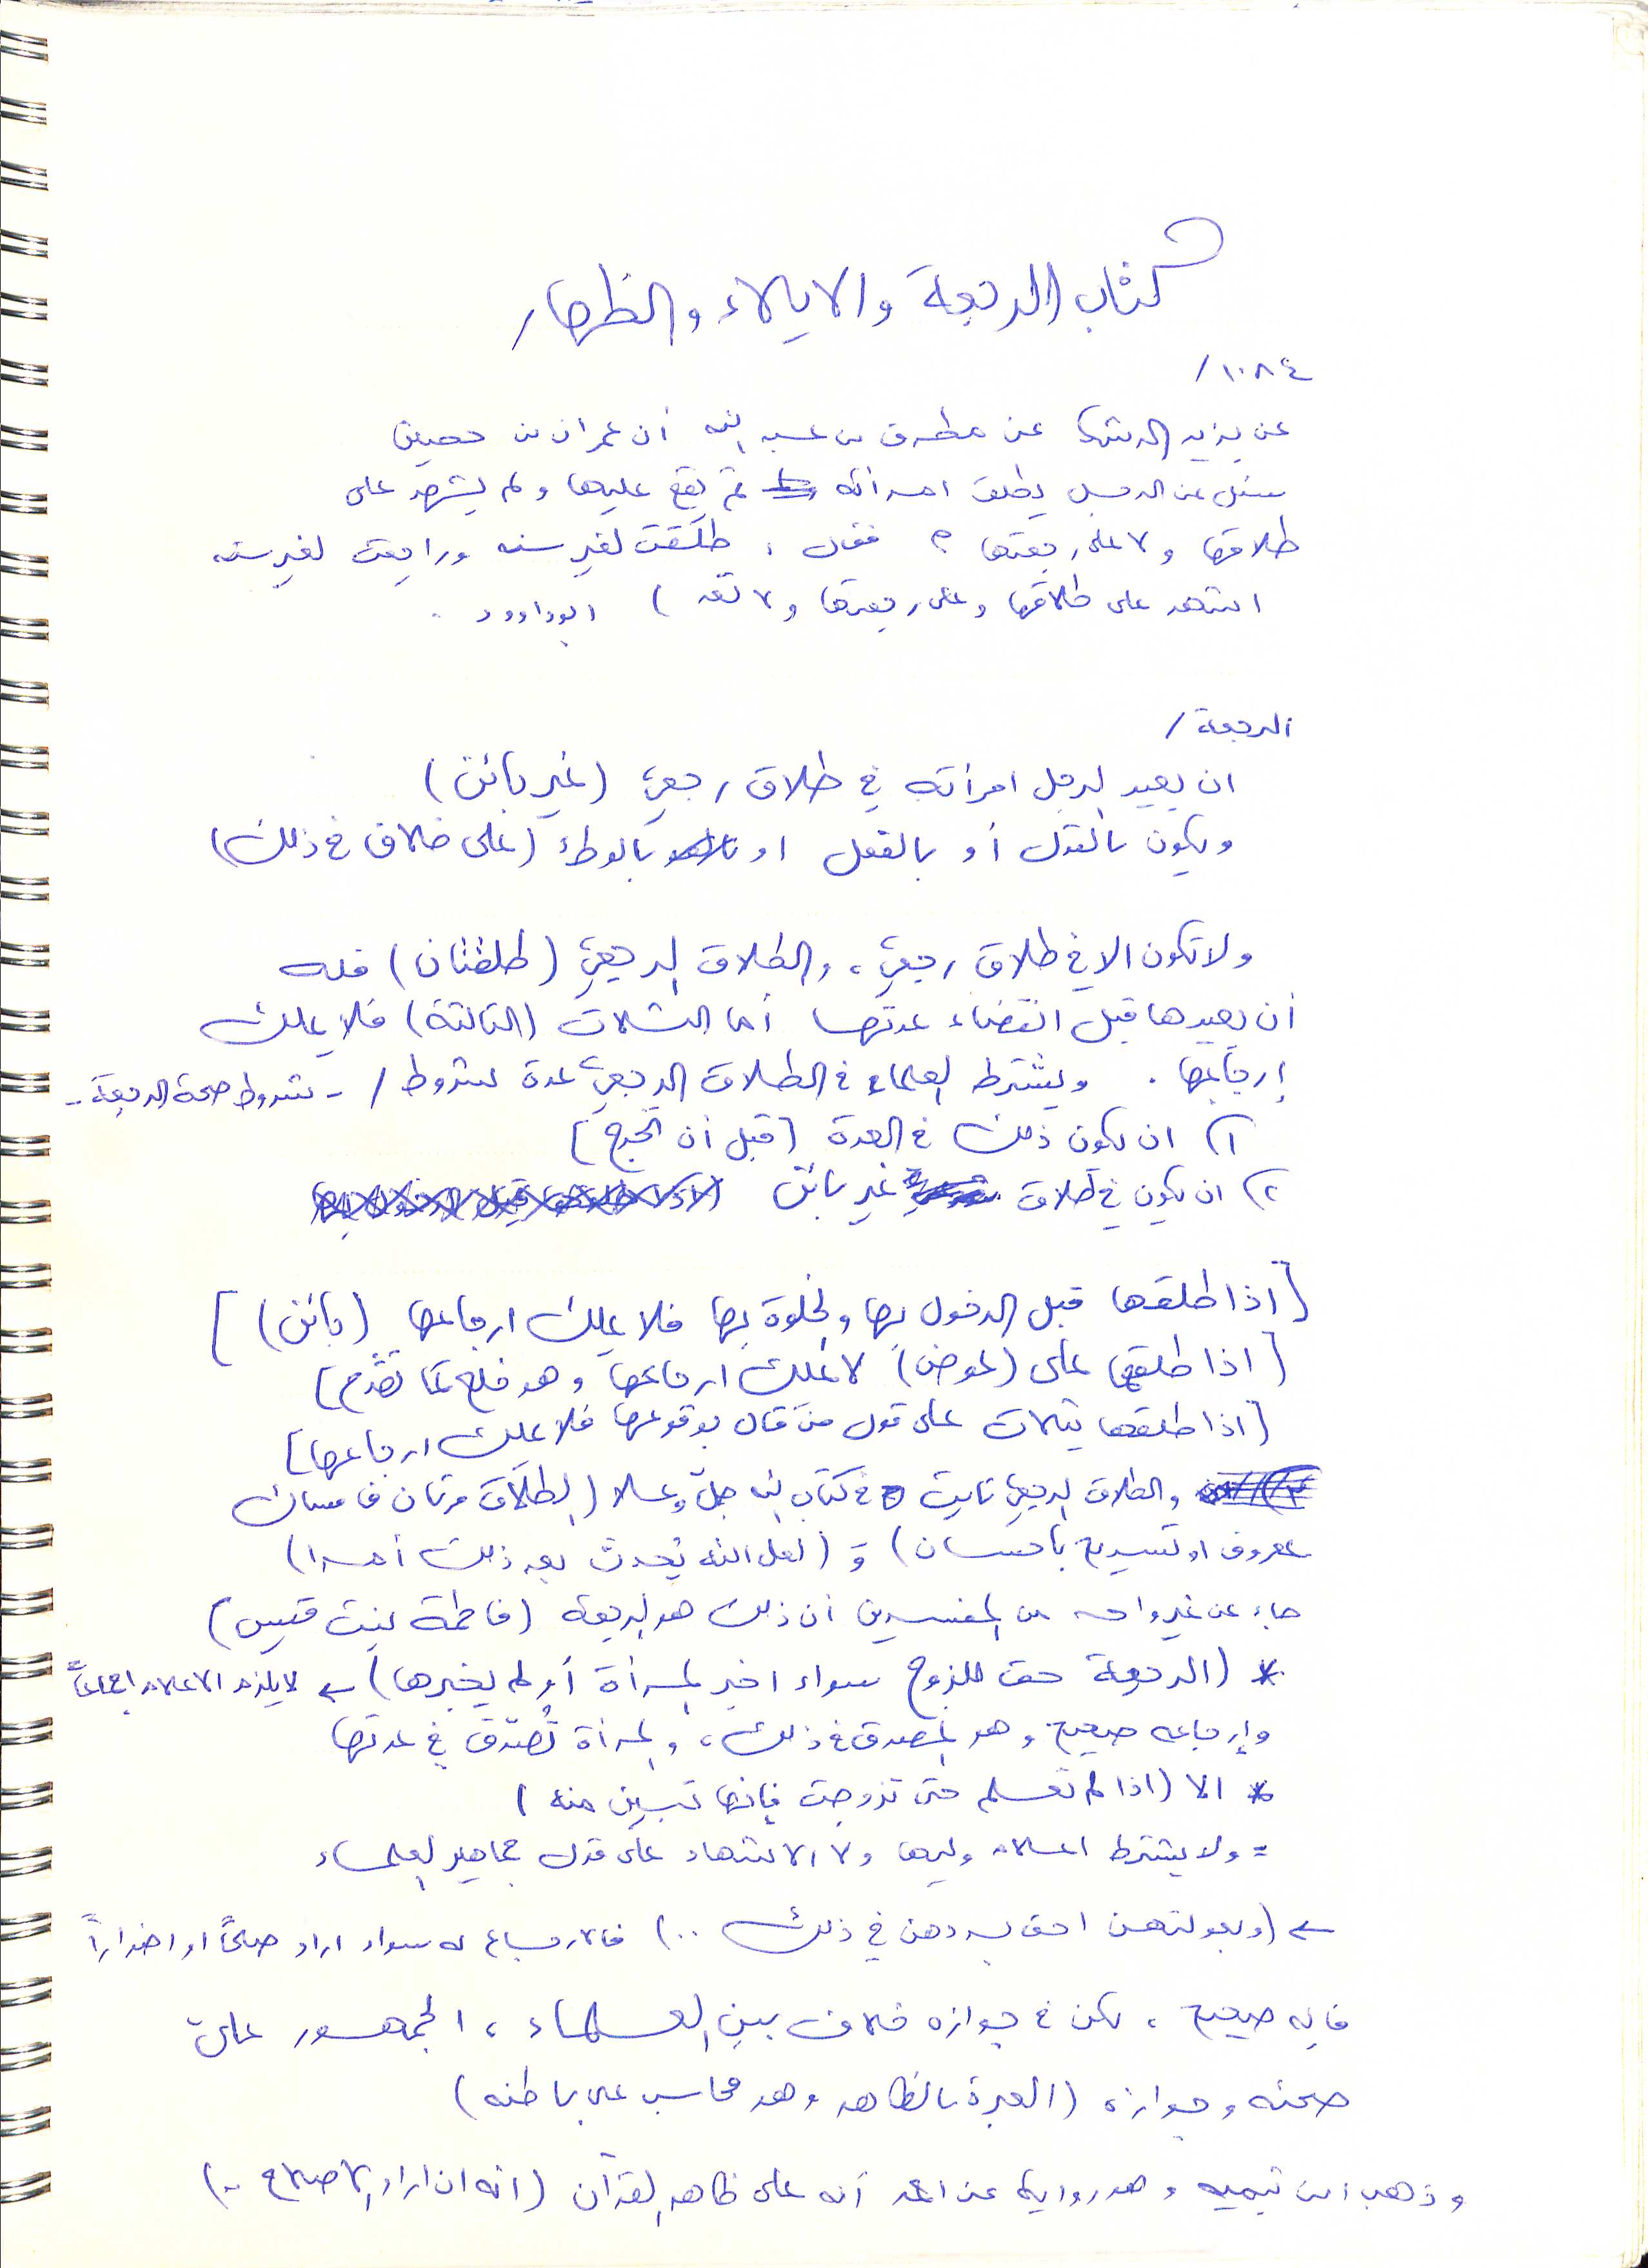 كتاب الرجعة والايلاء والظهار
١٠٨٤/
عن يزيد الرشك عن مطرف بن عبد الله أن عمران بن حصين
سئل عن الرجل يطلق امرأته ثم يقع عليها ولم يشهد على
طلاقها ولا على رجعتها ؟ فقال : طلقت لغير سنه وراجعت لغير سنه
اشهد على طلاقها وعلى رجعتها ولا تعد ) ابوداوود .
الرجعة /
ان يعيد الرجل امرأته في طلاق رجعي (غير بائن)
ويكون بالقول أو بالفعل او بالوطء (على خلاف في ذلك)
ولا تكون الا في طلاق رجعي ، والطلاق الرجعي (طلقتان) فله
أن يعيدها قبل انقضاء عدتها أما الثلاث (الثالثة) فلا يملك
إرجاعها . ويشترط العلماء في الطلاق الرجعي عدة شروط / - شروط صحة الرجعة -
١) ان يكون ذلك في العدة [قبل أن تخرج]
٢) ان يكون في طلاق غير بائن
[اذا طلقها قبل الدخول بها والخلوة بها فلا يملك ارجاعها (بائن)]
[اذا طلقها على (عوض) لا يملك ارجاعها وهو خلع كما تقدم]
[اذا طلقها بثلاث على قول من قال بوقوعها فلا يملك ارجاعها]
والطلاق الرجعي ثابت في كتاب الله جل وعلا (الطلاق مرتان فامساك
بمعروف او تسريح باحسان) و (لعل الله يحدث بعد ذلك أمرا)
جاء عن غير واحد من المفسرين أن ذلك هو الرجعة (فاطمة بنت قيس)
* (الرجعة حق للزوج سواء اخبر المرأة أو لم يخبرها) ← لا يلزم الاعلام اجماعاً
وإرجاعه صحيح وهو المصدق في ذلك ، والمرأة تُصدّق في عدتها
* الا (اذا لم تعلم حتى تزوجت فإنها تبين منه)
= ولا يشترط اعلام وليها ولا الاشهاد على قول جماهير العلماء
← (وبعولتهن احق بردهن في ذلك ..) فالارجاع له سواء اراد صلحاً او اضراراً
فإنه صحيح ، لكن في جوازه خلاف بين العلماء ، الجمهور على
صحته وجوازه (العبرة بالظاهر وهو محاسب على باطنه)
وذهب ابن تيميه وهو رواية عن احمد أنه على ظاهر القرآن (انه ان اراد الاصلاح ..)